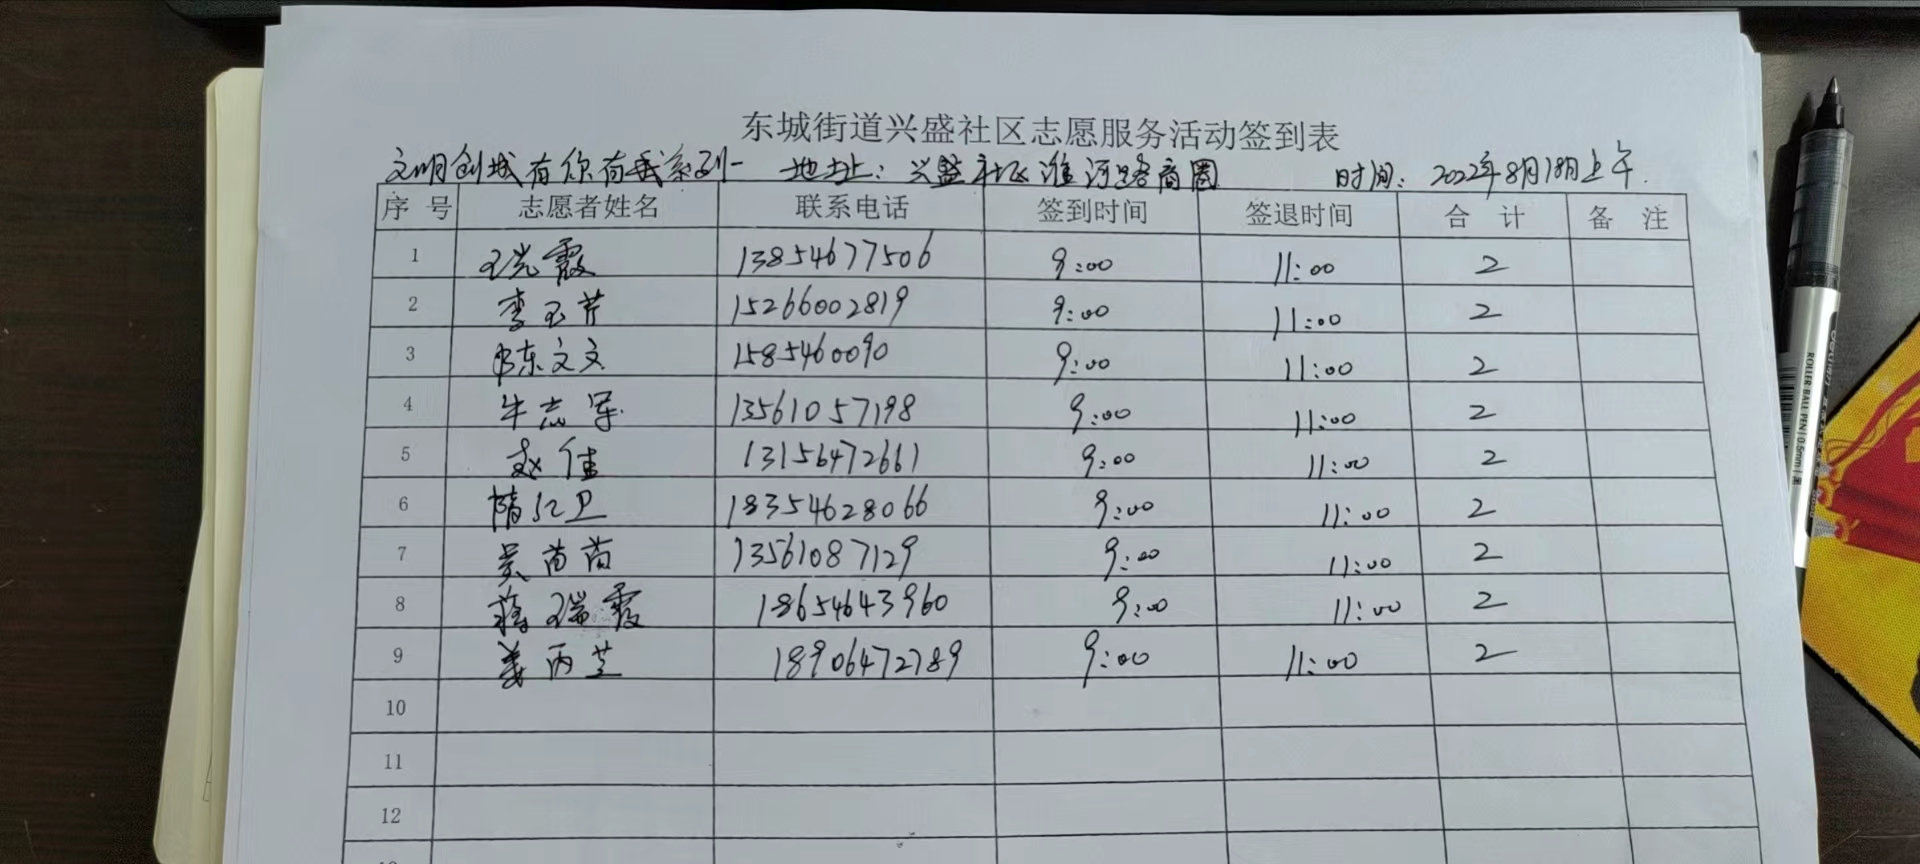 东城街道兴盛社区志愿服务活动签到表
文明创城有你有我系列一 地址：兴盛社区淮河路商圈 时间：2022年8月18日上午.
序号 志愿者姓名 联系电话 签到时间 签退时间 合计 备注
1 王瑞霞 13854677506 9:00 11:00 2
2 李玉芹 15266002819 9:00 11:00 2
3 陈文文 1585460090 9:00 11:00 2
4 牛志军 13561057198 9:00 11:00 2
5 赵佳 13156472661 9:00 11:00 2
6 隋红卫 18354628066 9:00 11:00 2
7 吴苗苗 13561087129 9:00 11:00 2
8 蒋瑞霞 18654643960 9:00 11:00 2
9 姜丙芝 18906472789 9:00 11:00 2
10
11
12
ROLLER BALL PEN 0.5mm 黑